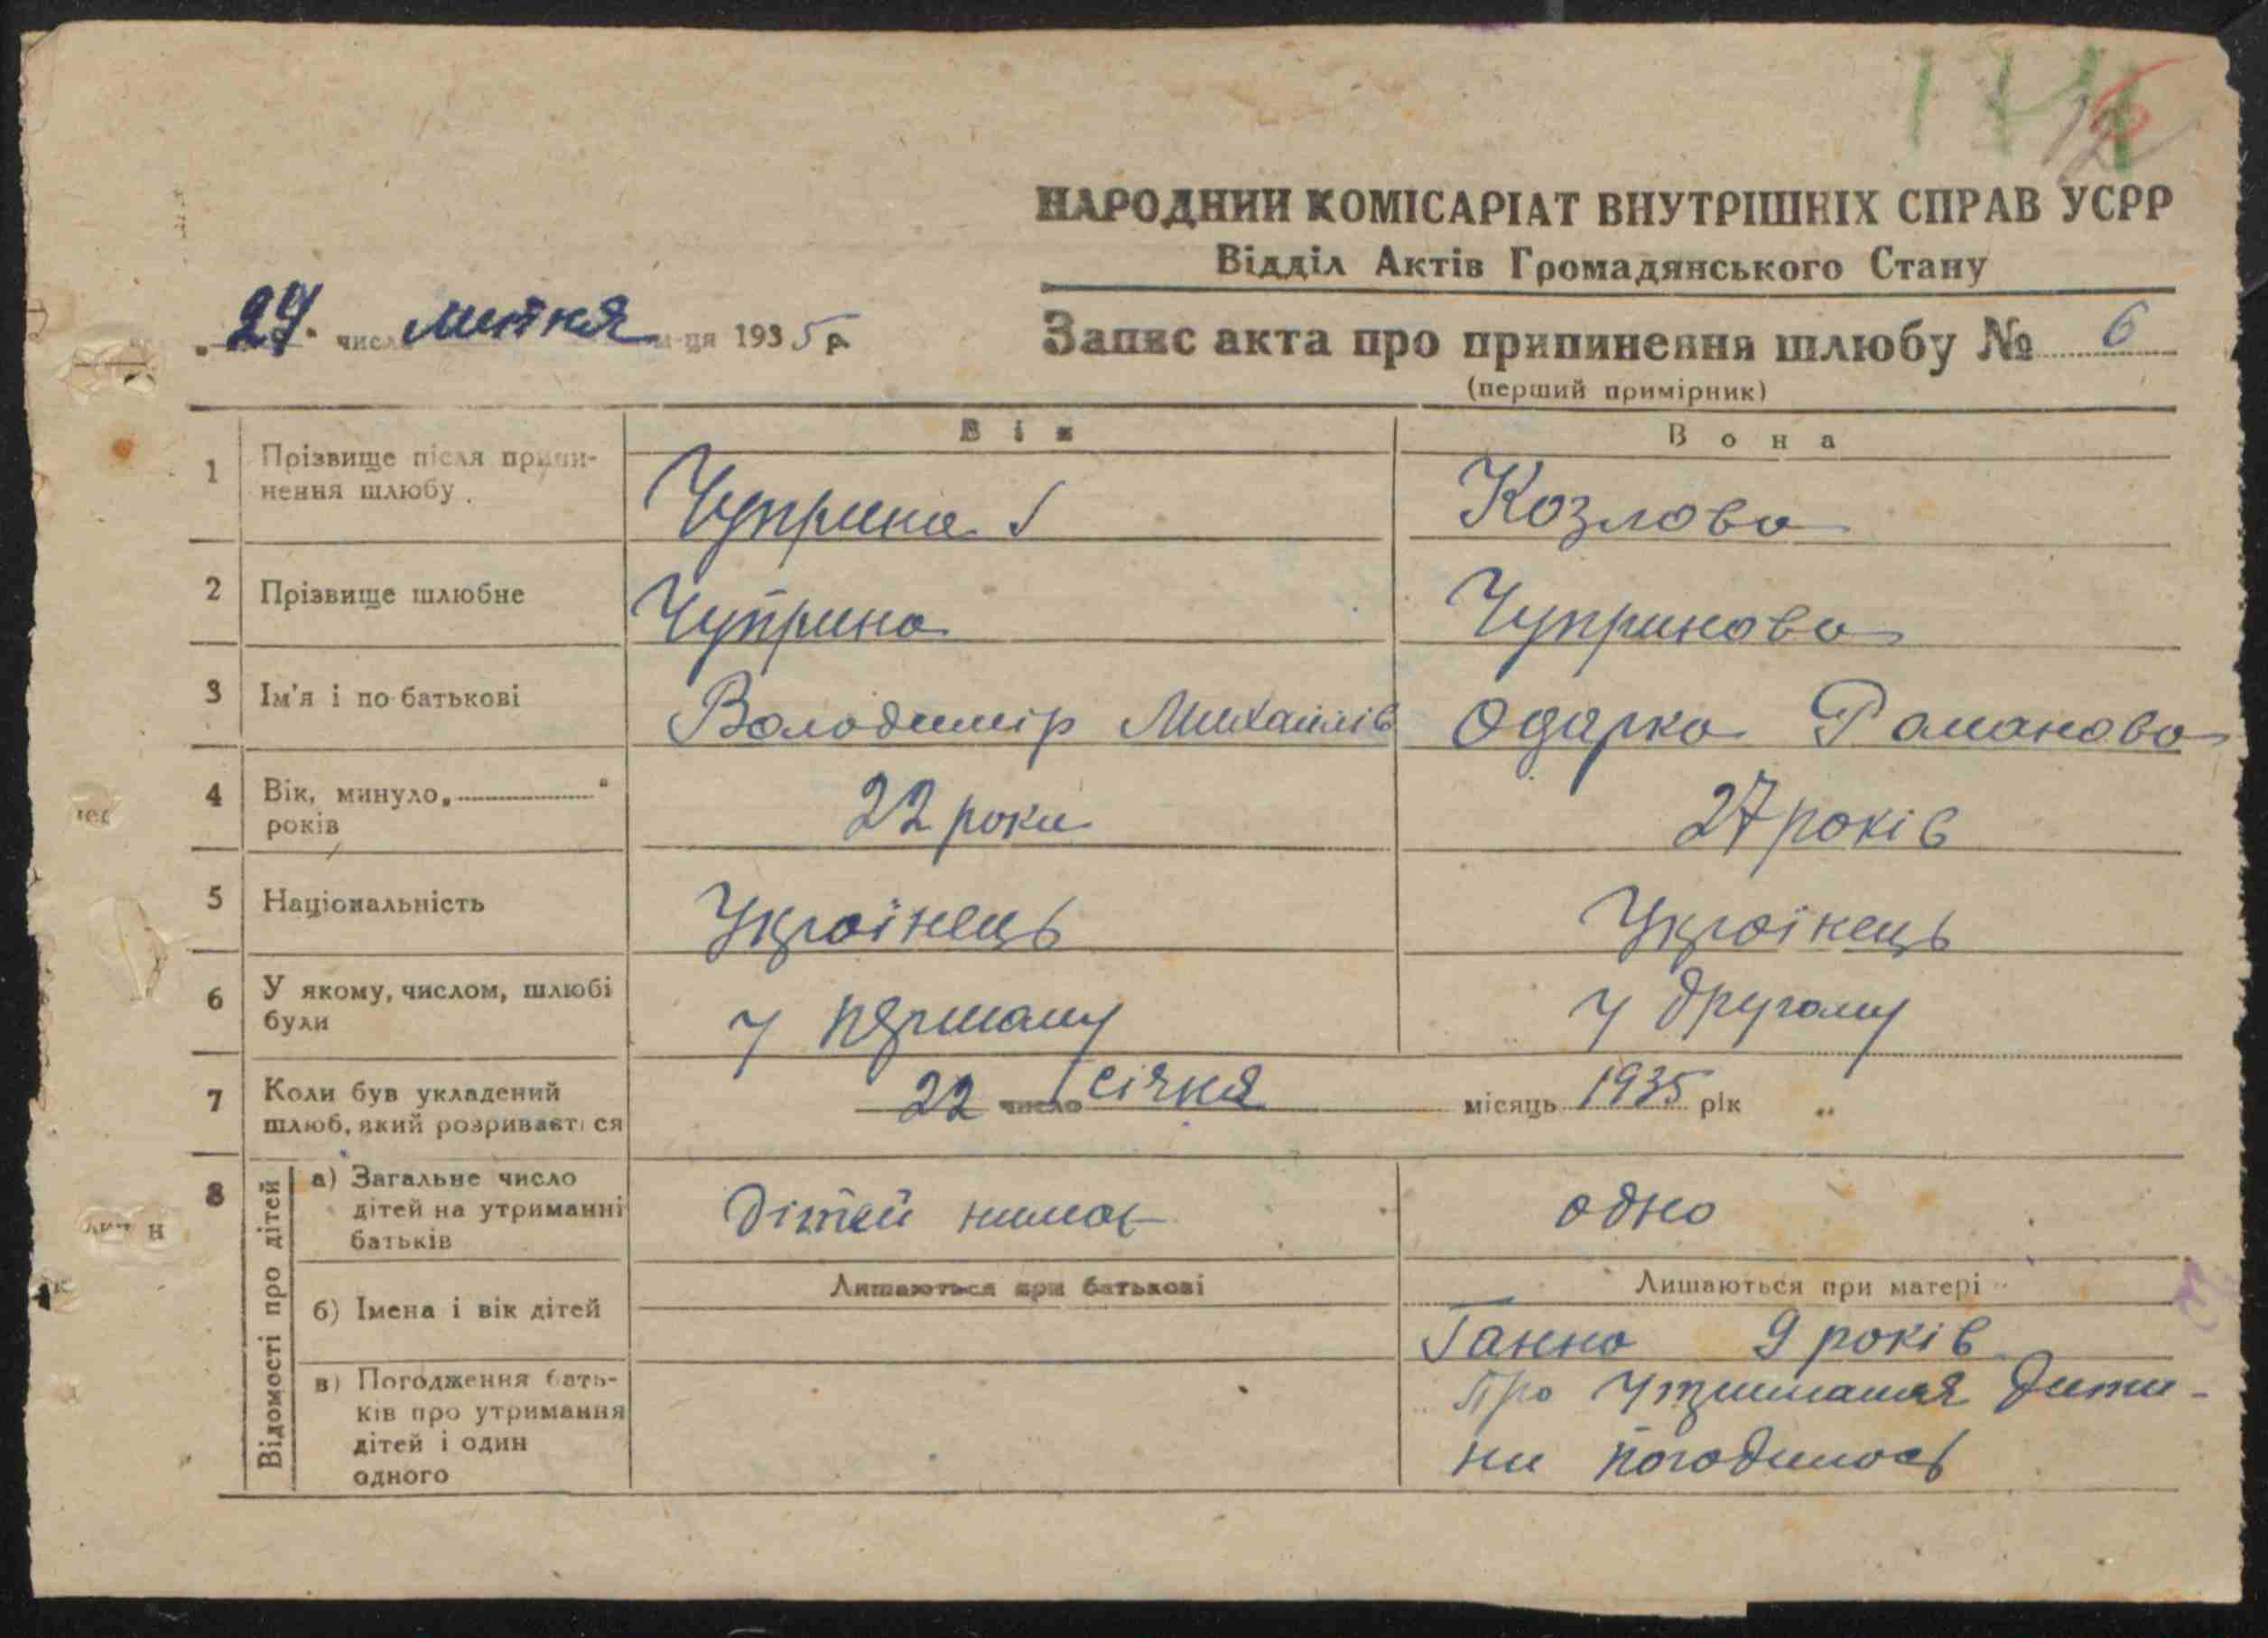 НАРОДНИЙ КОМІСАРІАТ ВНУТРІШНІХ СПРАВ УСРР
Відділ Актів Громадянського Стану
числ лютня м-ця 1935 р
Запис акта про припинення шлюбу № 6
(перший примірник)
Він Вона
1 Прізвище після припи-
нення шлюбу. Чуприна Козлова
2 Прізвище шлюбне Чуприна Чупринова
3 Ім'я і по-батькові Володимір Михайлів Одарка Романова
4 Вік, минуло „ “
років 22 роки 27 років
5 Національність Українець Українець
6 У якому, числом, шлюбі
були у першому у другому
7 Коли був укладений
шлюб, який розривається 22 число січня місяць 1935 рік
8 Відомості про дітей
а) Загальне число
дітей на утриманні
батьків дітей нимає одно
Лишаються при батькові Лишаються при матері
б) Імена і вік дітей Ганна 9 років
в) Погодження бать-
ків про утримання
дітей і один
одного
Про утримання дити-
ни погодилось